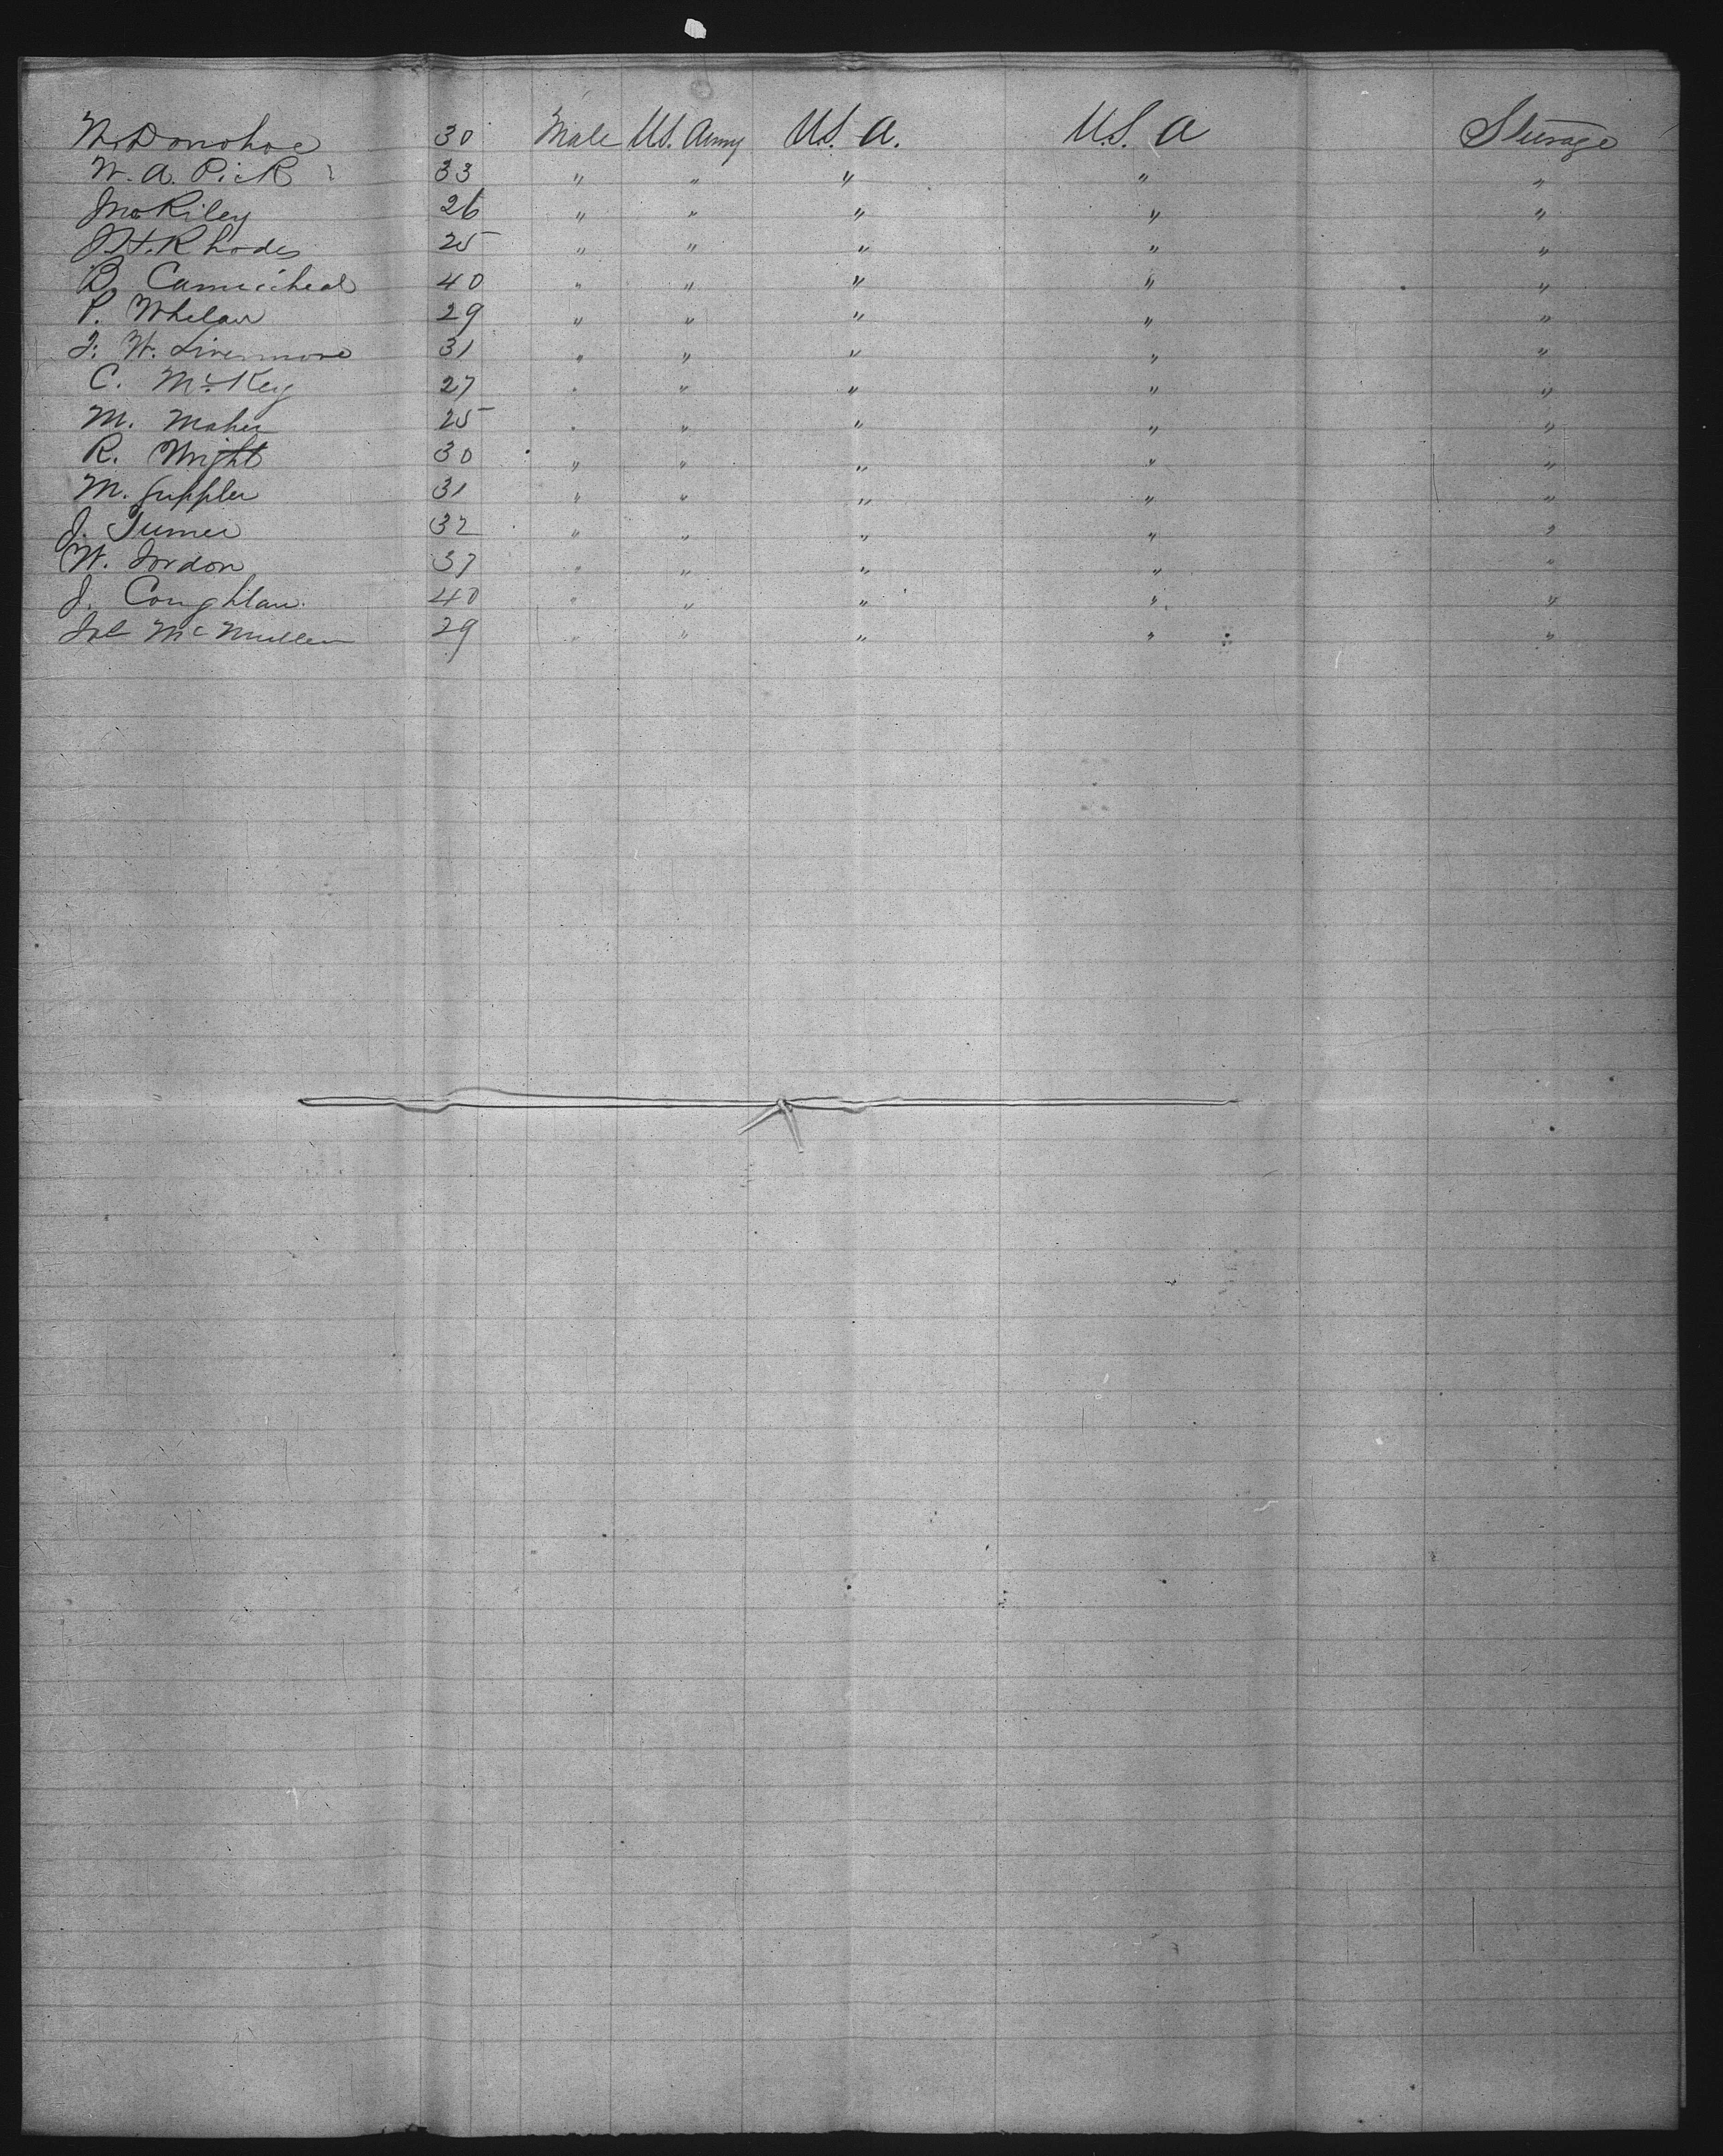 W. Donohoe 30 Male U.S. Army U.S. A. U.S. A Steerage
W. A. Pick 33 " " " " "
Jno Riley 26 " " " " "
J. H. Rhodes 25 " " " " "
B. Carmicheal 40 " " " " "
P. Whelan 29 " " " " "
F. W. Livermore 31 " " " " "
C. McKey 27 " " " " "
M. Maher 25 " " " " "
R. Wright 30 " " " " "
M. 31 " " " " "
J. Turner 32 " " " " "
W. Jordon 37 " " " " "
J. Coughlan. 40 " " " " "
McMullen 29 " " " " "